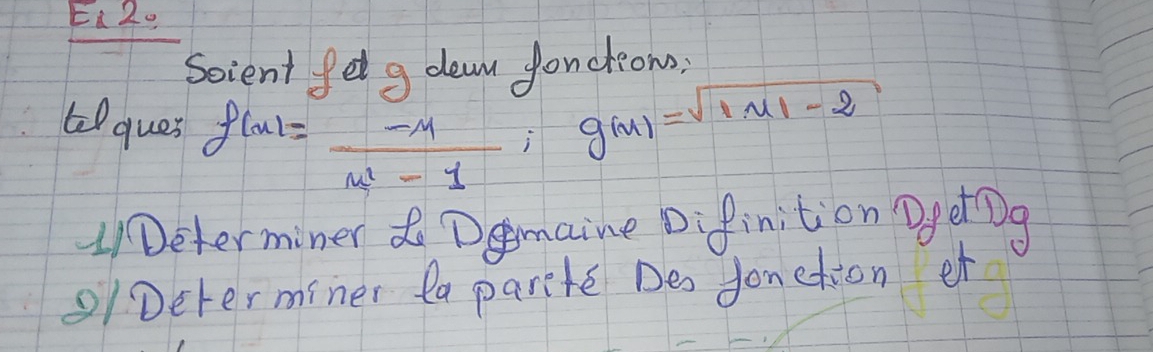 Ex 2:
Soient f et g deux fonctions;
tel ques f(x) = -x / x² - 1 ; g(x) = √|x| - 2
1/ Déterminer le Domaine Difinition Df et Dg
2/ Determiner la parité Des fonction f et g